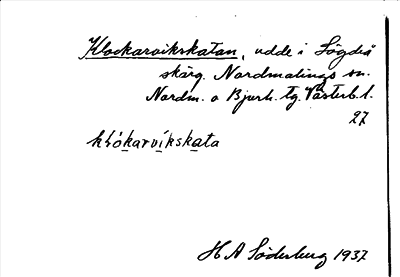 Klockarvikskatan, udde i Lögdeå
skärg. Nordmalings sn.
Nordm. o Bjurh. tg. Västerb. l.
27
klókarvíkskata
H A Söderberg 1937